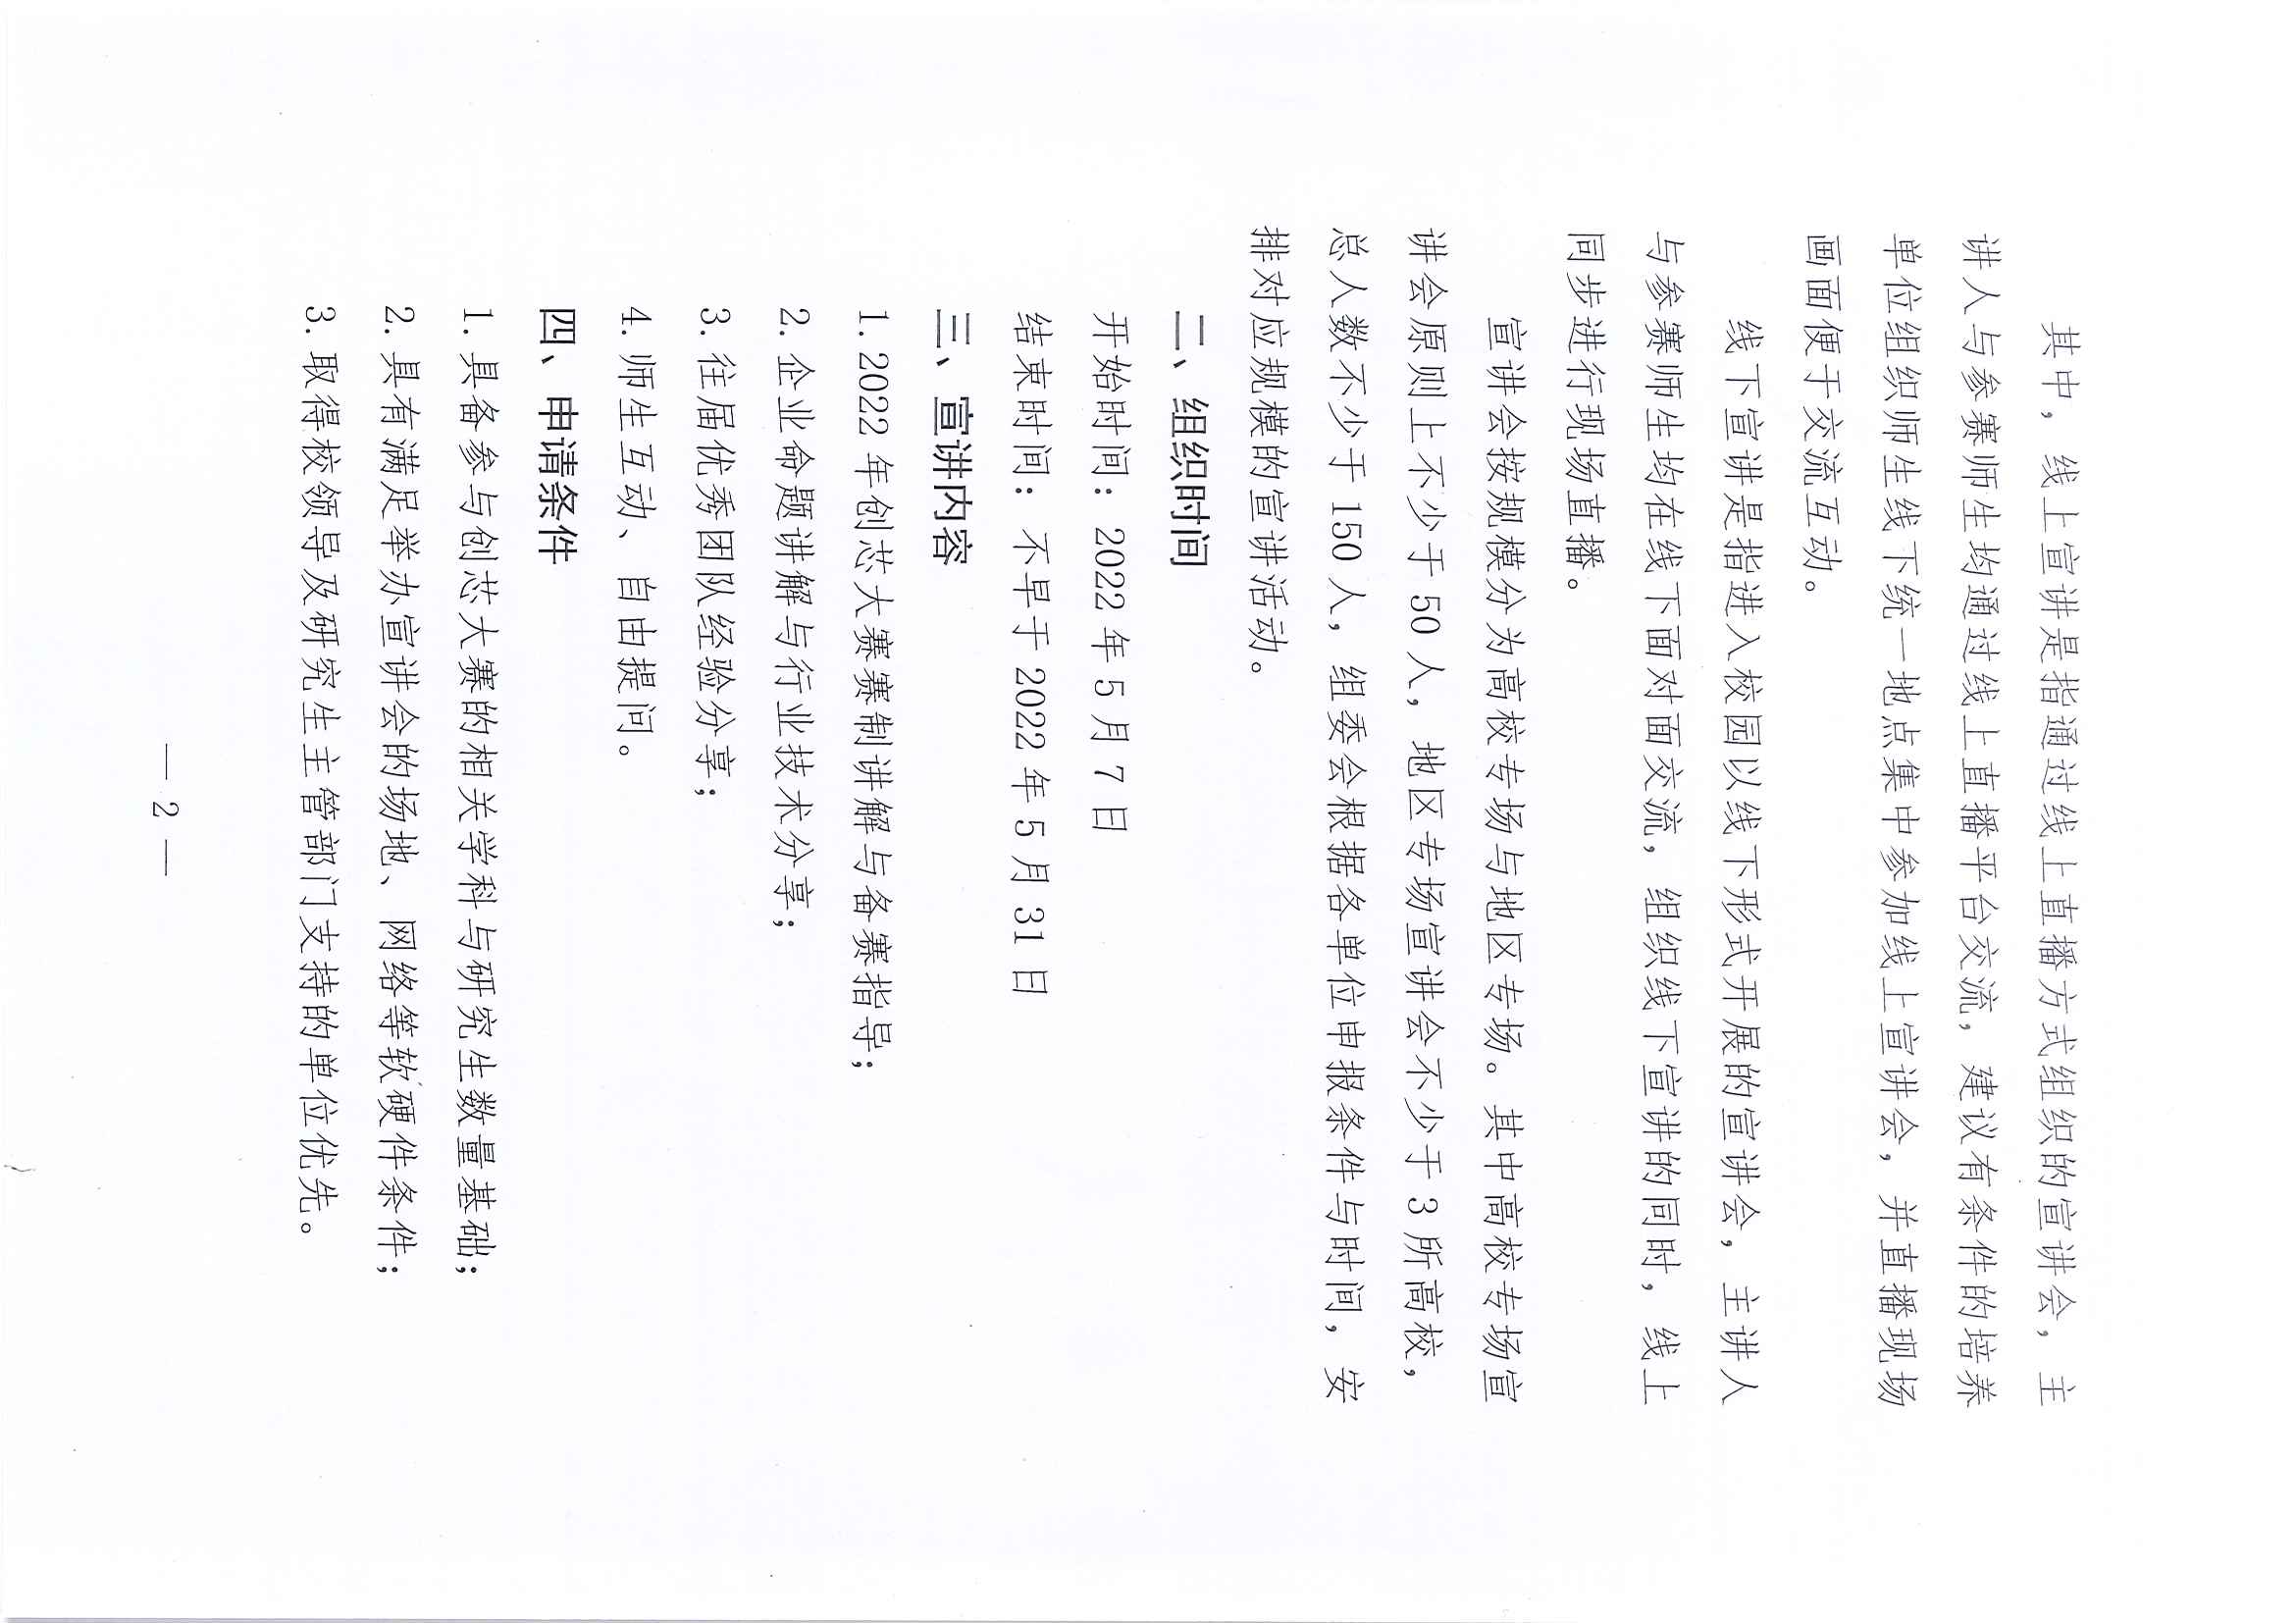 其中，线上宣讲是指通过线上直播方式组织的宣讲会，主
讲人与参赛师生均通过线上直播平台交流，建议有条件的培养
单位组织师生线下统一地点集中参加线上宣讲会，并直播现场
画面便于交流互动。
线下宣讲是指进入校园以线下形式开展的宣讲会，主讲人
与参赛师生均在线下面对面交流，组织线下宣讲的同时，线上
同步进行现场直播。
宣讲会按规模分为高校专场与地区专场。其中高校专场宣
讲会原则上不少于 50 人，地区专场宣讲会不少于 3 所高校，
总人数不少于 150 人，组委会根据各单位申报条件与时间，安
排对应规模的宣讲活动。
二、组织时间
开始时间：2022 年 5 月 7 日
结束时间：不早于 2022 年 5 月 31 日
三、宣讲内容
1. 2022 年创芯大赛赛制讲解与备赛指导；
2. 企业命题讲解与行业技术分享；
3. 往届优秀团队经验分享；
4. 师生互动、自由提问。
四、申请条件
1. 具备参与创芯大赛的相关学科与研究生数量基础；
2. 具有满足举办宣讲会的场地、网络等软硬件条件；
3. 取得校领导及研究生主管部门支持的单位优先。
— 2 —